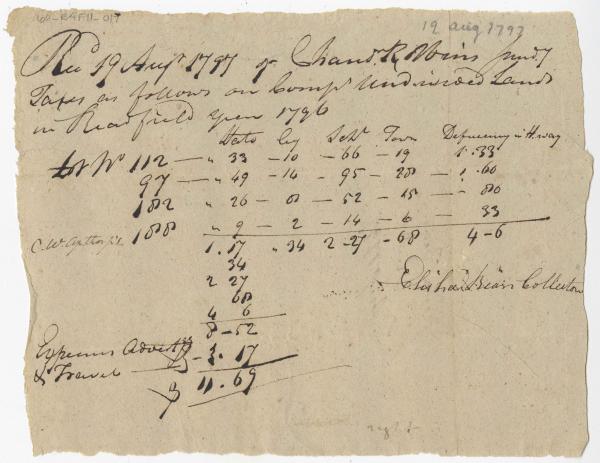 19 aug 1797
Rec'd 19 Augt. 1797 of Chandr. Robbins
Taxes as follows on Compy Undivided Lands
in Readfield year 1796
State Cy Schl. Town Defisiency in H.way
Lot No 112 — " 33 — 10 — 66 — 19 1.33
97 — " 49 — 14 — 95 — 28 — 1.60
182 " 26 — 8 — 52 — 15 — 80
C. W. Apthorp's 188 " 9 — 2 — 14 — 6 — 33
1.17 " 34 2-27 — 68 4-6
34
2 27
68
4 6
8-52
Expenses Advertg
& Travel — 3.17
11.69
Elisha Bean Collector
right